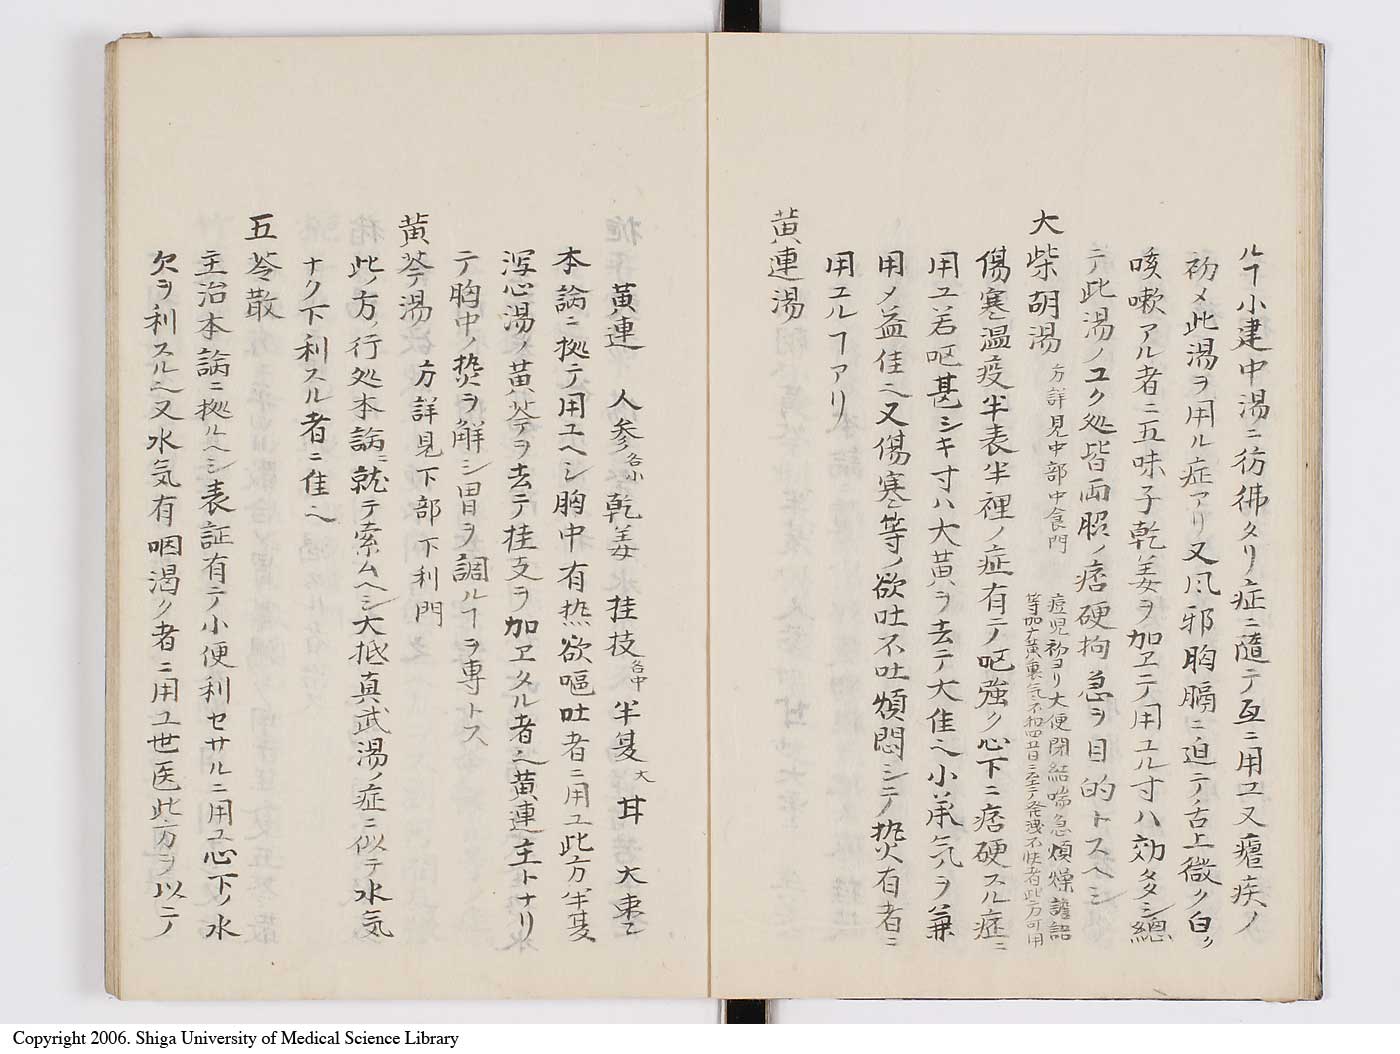 ルヿ小建中湯ニ彷彿タリ症ニ隨テ互ニ用ユ又瘧疾ノ
初メ此湯ヲ用ル症アリ又风邪胸膈ニ迫テ舌上微ク白ク
咳嗽アル者ニ五味子乾姜ヲ加ヱテ用ユル寸ハ効多シ總
テ此湯ノユク処皆両脇ノ痞硬拘急ヲ目的トスヘシ
大柴胡湯 方詳見中部中食門 痘児初ヨリ大便閉結喘急煩燥譫語
等如大黄裏気不和四五日ニ至テ発洩不快者此方可用
傷寒温疫半表半裡ノ症有テ呕強ク心下ニ痞硬スル症ニ
用ユ若呕甚シキ寸ハ大黄ヲ去テ大佳ヘ小承気ヲ兼
用メ益佳ヘ又傷寒等ノ欲吐不吐煩悶シテ𤍠有者ニ
用ユルヿアリ
黄連湯
黄連 人参各小乾姜 桂枝各中半夏大耳 大棗乙
本論ニ拠テ用ユヘシ胸中有热欲嘔吐者ニ用ユ此方半夏
泻心湯ノ黄芩ヲ去テ桂支ヲ加ヱタル者ヘ黄連主トナリ
テ胸中ノ𤍠ヲ解シ胃ヲ調ルヿヲ専トス
黄芩湯 方詳見下部下利門
此ノ方ノ行処本論ニ就テ索ムヘシ大抵真武湯ノ症ニ似テ水気
ナク下利スル者ニ佳ヘ
五苓散
主治本論ニ拠ルヘシ表証有テ小便利セサルニ用ユ心下ノ水
欠ヲ利スルヘ又水気有咽渇ク者ニ用ユ世医此方ヲ以テ